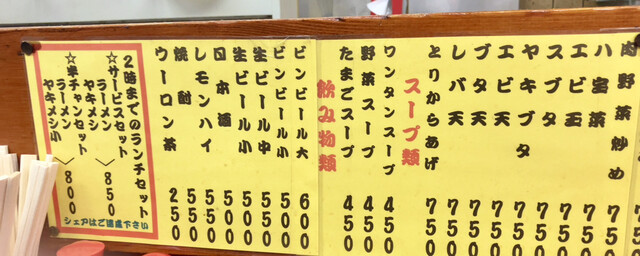 肉野菜炒め 750
八宝菜 750
エビ玉 750
スブタ 750
ヤキブタ 750
エビ天 750
ブタ天 750
レバ天 750
とりからあげ 750
スープ類
ワンタンスープ 450
野菜スープ 450
たまごスープ 450
飲み物類
ビンビール大 600
ビンビール小 500
生ビール中 550
生ビール小 500
日本酒 500
レモンハイ 550
焼酎 550
ウーロン茶 250
2時までのランチセット
☆サービスセット
ラーメン
ヤキメシ 〉850
☆半チャンセット
ラーメン
ヤキメシ小 〉800
シェアはご遠慮下さい